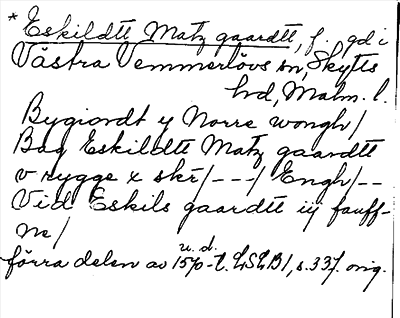 * Eskildtt Matz gaardtt, f. gd i
Västra Vemmerlövs sn, Skytts
hd, Malm. l.
Bygiordt y Norre wongh/
Bag Eskildtt Matz gaardtt
v rygge x skr/---/ Engh/--
Vid Eskils gaardtt iij fauff-
ne/
u. d.
förra delen av 1570-t. LSLB1, s. 337. orig.